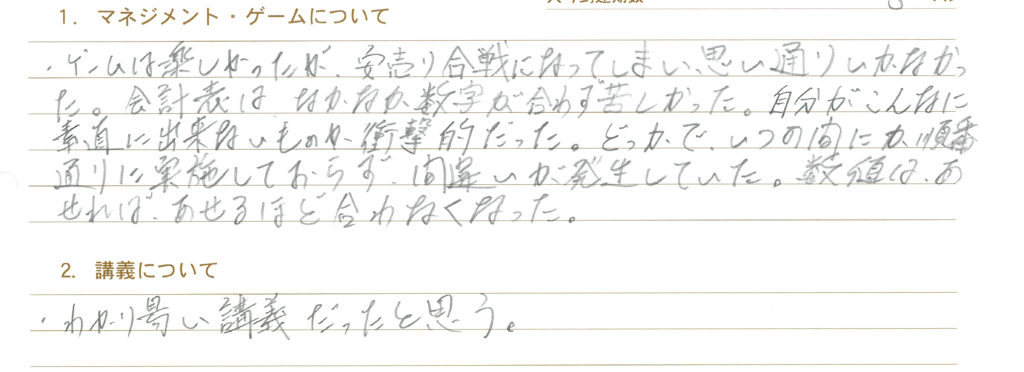 1. マネジメント・ゲームについて
・ゲームは楽しかったが、安売り合戦になってしまい、思い通りいかなかっ
た。会計表は、なかなか数字が合わず苦しかった。自分がこんなに
素直に出来ないものか、衝撃的だった。どっかで、いつの間にか、順番
通りに実施しておらず、間違いが発生していた。数値は、あ
せれば、あせるほど合わなくなった。
2. 講義について
・わかり易い講義だったと思う。